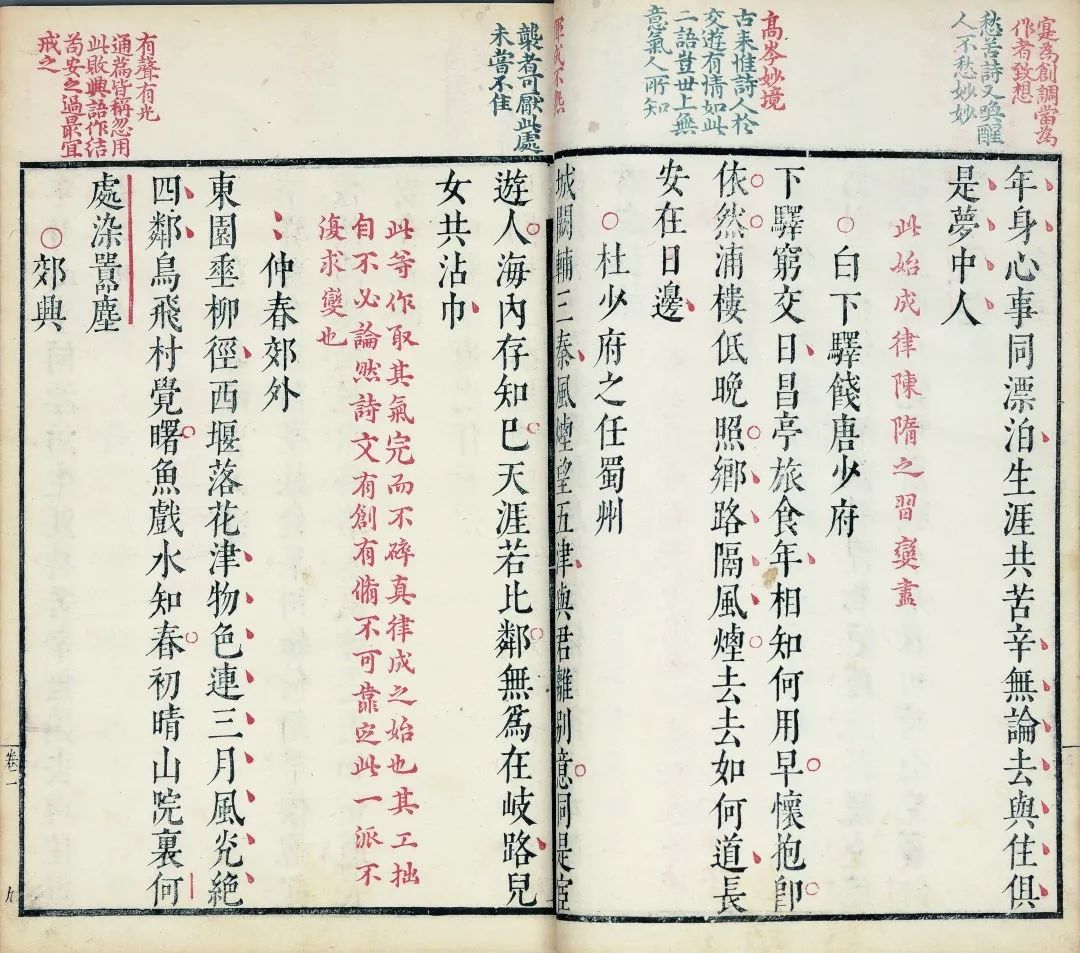 寔為創調當為
作者致想
愁苦詩又喚醒
人不愁妙妙
高岑妙境
古來惟詩人於
交遊有情如此
二語豈世上無
意氣人所知
年身心事同漂泊生涯共苦辛無論去與住俱
是夢中人
此始成律陳隋之習變盡
白下驛餞唐少府
下驛窮交日昌亭旅食年相知何用早懷抱卽
依然浦樓低晚照鄉路隔風煙去去如何道長
安在日邊
杜少府之任蜀州
城闕輔三秦風煙望五津與君離別意同是宦
襲者可厭此處
未嘗不佳
有聲有光
通篇皆稱忽用
此敗興語作結
苟安之過最宜
戒之
遊人海內存知已天涯若比鄰無爲在岐路兒
女共沾巾
此等作取其氣完而不碎真律成之始也其工拙
自不必論然詩文有創有脩不可靠定此一派不
復求變也
仲春郊外
東園垂柳徑西堰落花津物色連三月風光絕
四鄰鳥飛村覺曙魚戲水知春初晴山院裏何
處染囂塵
郊興
卷一
九